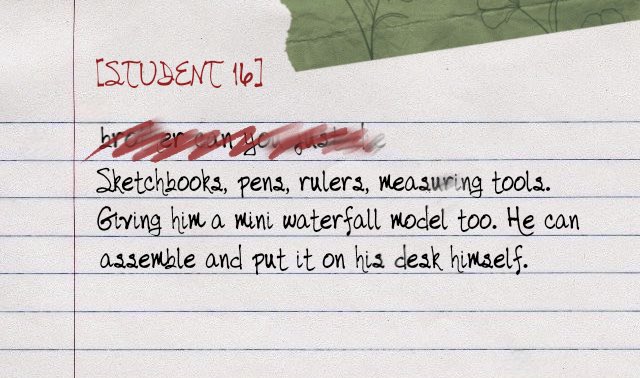 [STUDENT 16]
can
Sketchbooks, pens, rulers, measuring tools.
Giving him a mini waterfall model too. He can
assemble and put it on his desk himself.